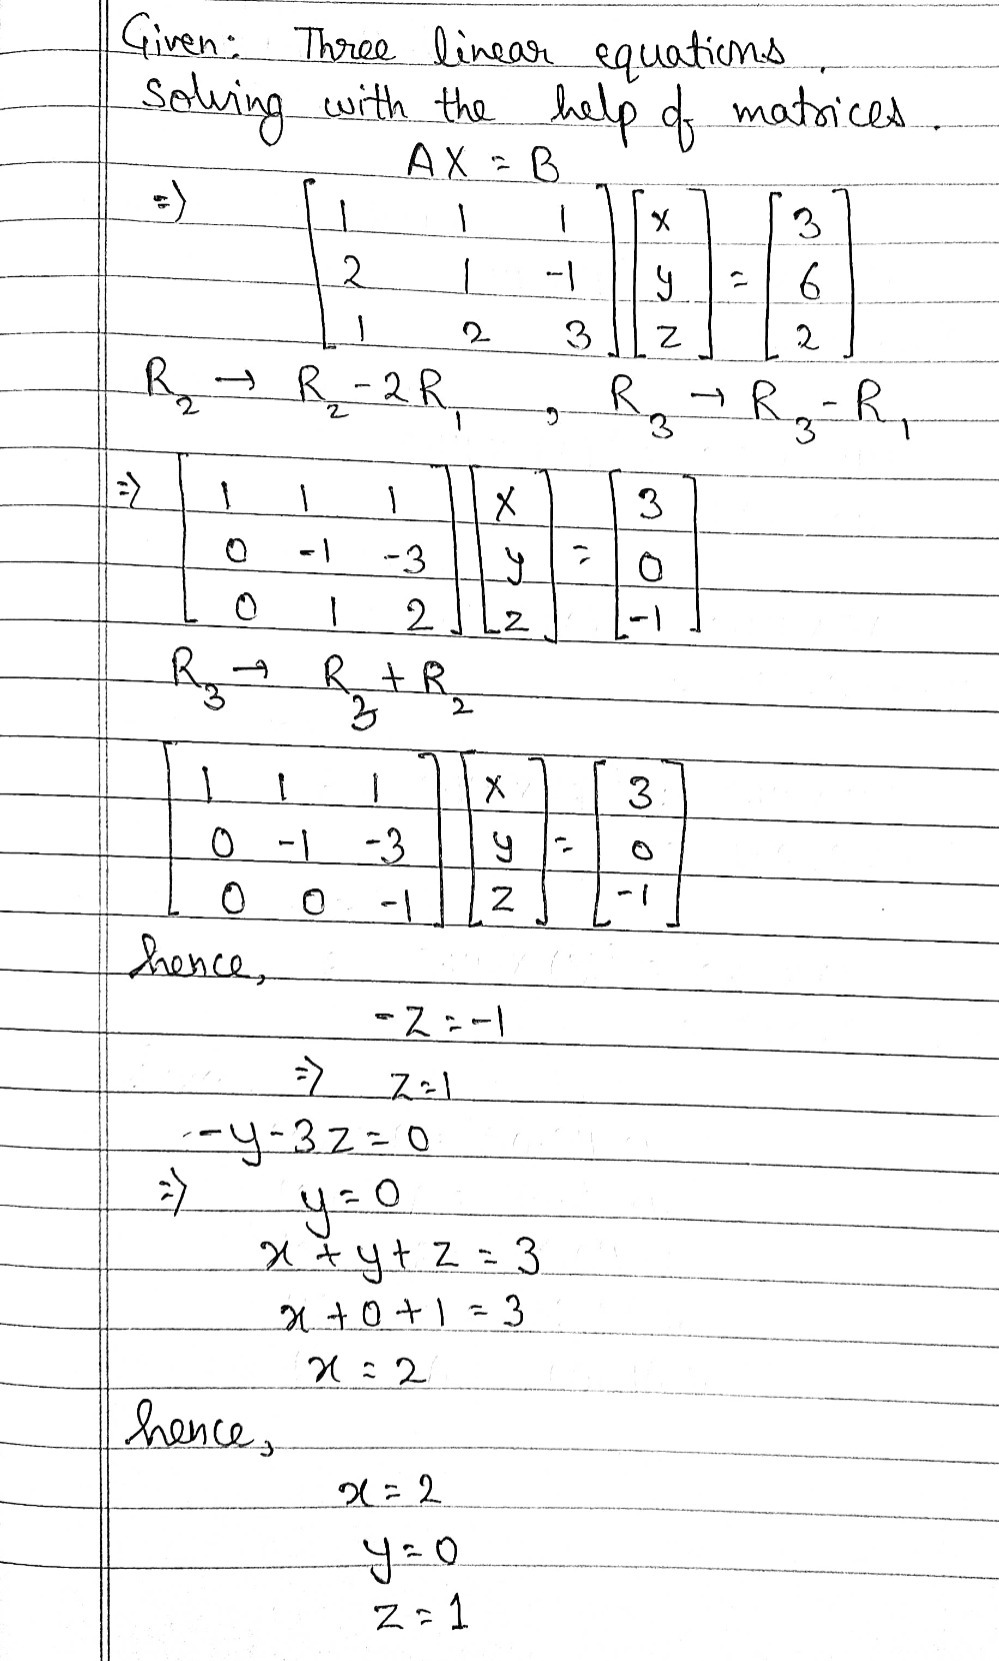 Given: Three linear equations.
Solving with the help of matrices.
AX = B
=> [1 1 1] [x] = [3]
[2 1 -1] [y] = [6]
[1 2 3] [z] [2]
R₂ → R₂ - 2R₁ , R₃ → R₃ - R₁
=> [1 1 1] [x] = [3]
[0 -1 -3] [y] = [0]
[0 1 2] [z] [-1]
R₃ → R₃ + R₂
[1 1 1] [x] = [3]
[0 -1 -3] [y] = [0]
[0 0 -1] [z] [-1]
hence,
-z = -1
=> z = 1
-y - 3z = 0
=> y = 0
x + y + z = 3
x + 0 + 1 = 3
x = 2
hence,
x = 2
y = 0
z = 1